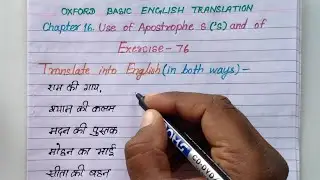 OXFORD BASIC ENGLISH TRANSLATION
Chapter 16. Use of Apostrophe s ('s) and of
Exercise - 76
Translate into English (in both ways) -
राम की गाय,
श्याम की कलम
मदन की पुस्तक
मोहन का भाई
सीता की बहन